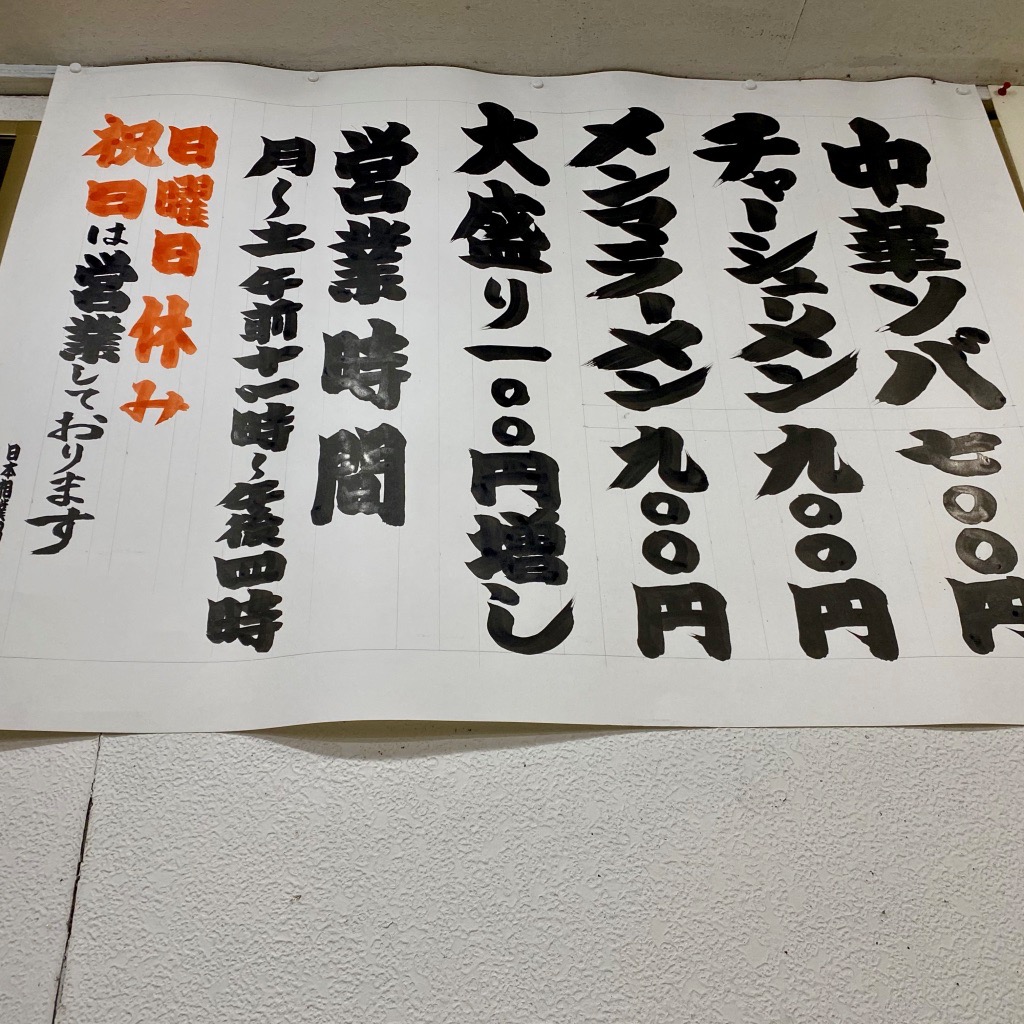 中華ソバ 七〇〇円
チャーシューメン 九〇〇円
メンマラーメン 九〇〇円
大盛り一〇〇円増し
営業時間
月〜土 午前十一時〜午後四時
日曜日 休み
祝日は営業しております
日本相撲